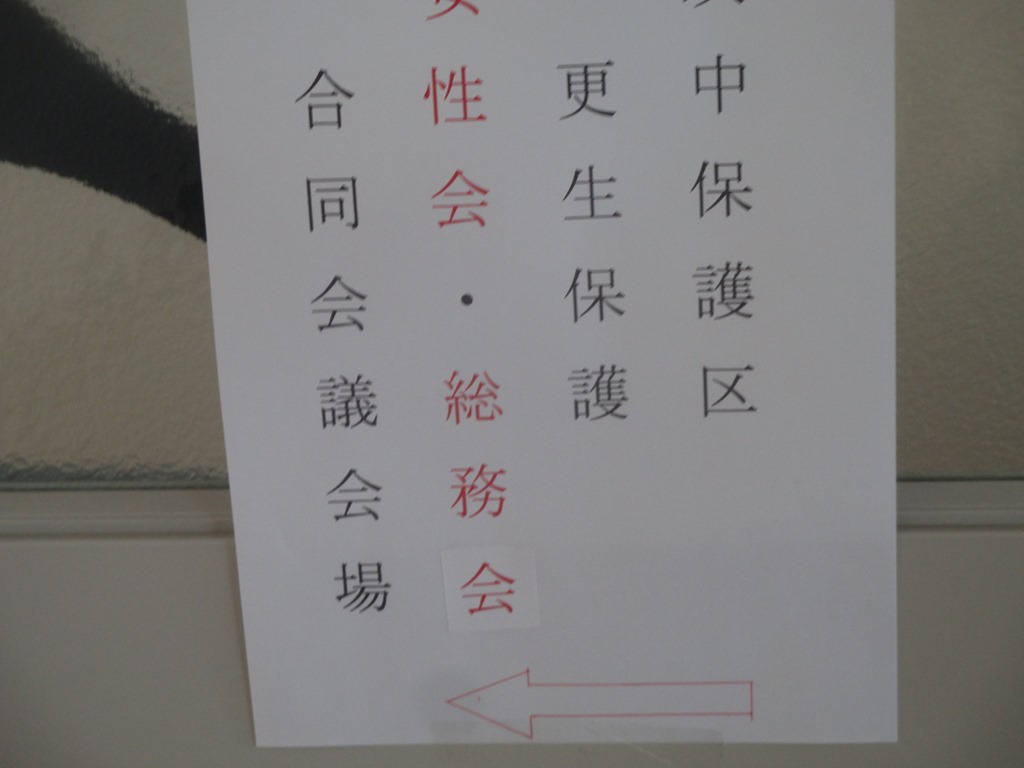 中保護区
更生保護
女性会・総務会
合同会議会場